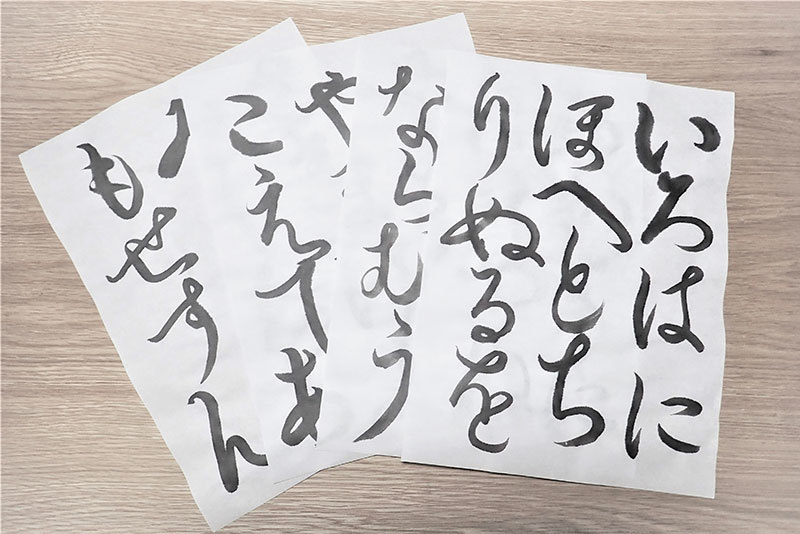 いろはに
ほへとち
りぬるを
ならむう
や
こえてあ
もせすん